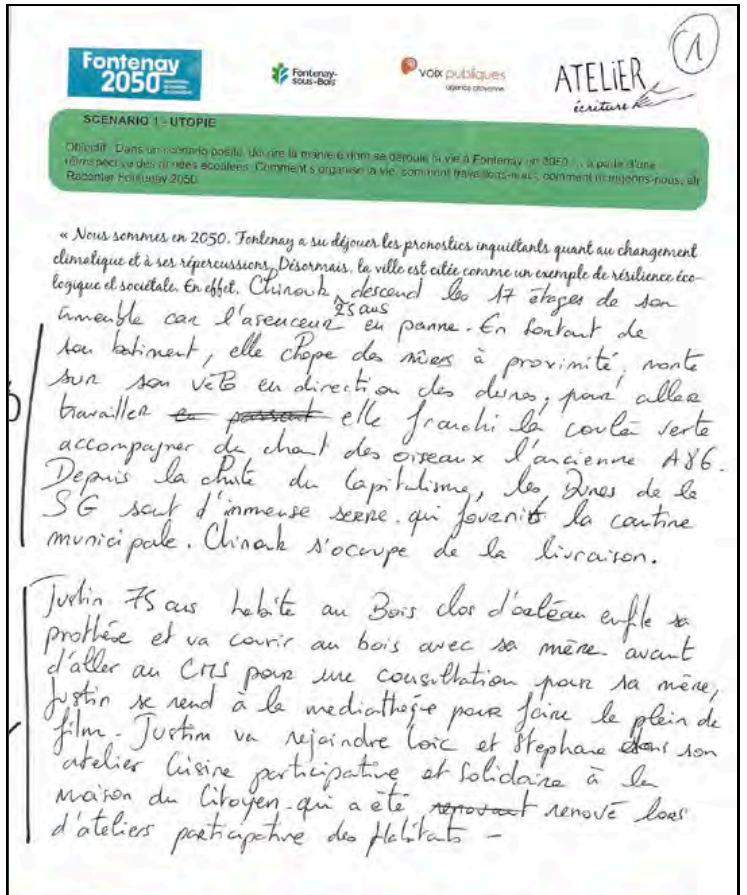 1
Fontenay
2050
Fontenay-
sous-Bois
voix publiques
agence citoyenne
ATELIER
écriture
SCENARIO 1 - UTOPIE
Objectif : Dans un scénario positif, décrire la manière dont se déroule la vie à Fontenay en 2050 ... à partir d'une
rétrospective des années écoulées. Comment s'organise la vie, comment travaillons-nous, comment mangeons-nous, etc
Raconter Fontenay 2050.
« Nous sommes en 2050. Fontenay a su déjouer les pronostics inquiétants quant au changement
climatique et à ses répercussions. Désormais, la ville est citée comme un exemple de résilience éco-
logique et sociétale. En effet, Chinouk, descend les 17 étages de son
25 ans
immeuble car l'asenceur en panne. En sortant de
son batiment, elle chope des mûres à proximité, monte
sur son vélo en direction des dunes, pour aller
travailler en passant elle franchi la coulée verte
accompagner du chant des oiseaux l'ancienne A86.
Depuis la chute du Capitalisme, les Dunes de la
SG sont d'immense serre qui fournit la cantine
municipale. Chinouk s'occupe de la livraison.
Justin 75 ans habite au Bois clos d'orléan enfile sa
prothèse et va courir au bois avec sa mère avant
d'aller au CMS pour une consultation pour sa mère,
Justin se rend à la mediathèque pour faire le plein de
film. Justin va rejoindre Loïc et Stephane dans son
atelier Cuisine participative et Solidaire à la
maison du Citoyen qui a été renové lors
d'ateliers participative des Habitants -